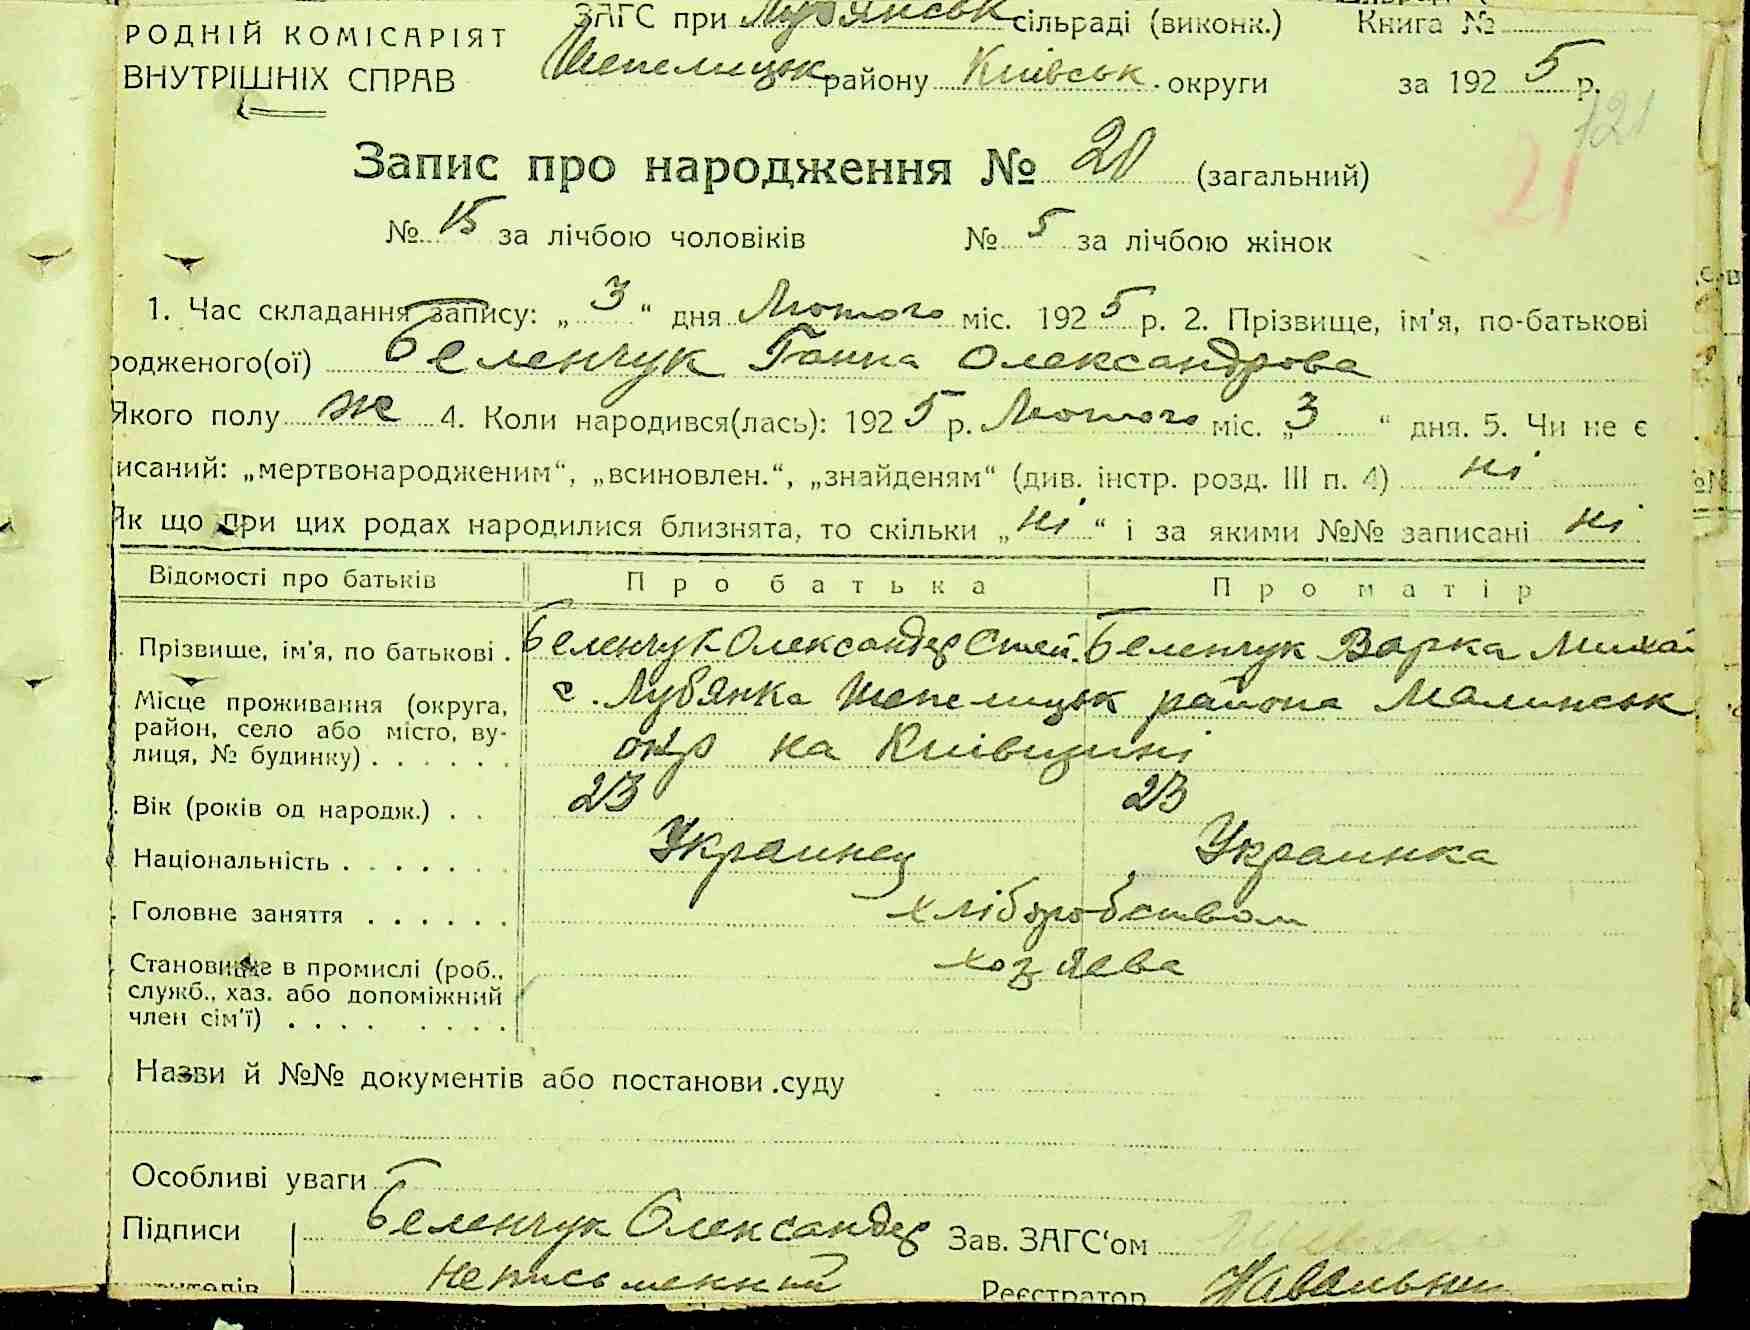 РОДНІЙ КОМІСАРІЯТ
ВНУТРІШНІХ СПРАВ
ЗАГС при Лубянськ сільраді (виконк.) Книга №
Шепелицьк району Київськ округи за 1925 р.
121
21
Запис про народження № 20 (загальний)
№ 15 за лічбою чоловіків № 5 за лічбою жінок
1. Час складання запису: „3“ дня Лютого міс. 1925 р. 2. Прізвище, ім'я, по-батькові
родженого(ої) Беленчук Ганна Олександрова
Якого полу ж 4. Коли народився(лась): 1925 р. Лютого міс. „3“ дня. 5. Чи не є
исаний: „мертвонародженим“, „всиновлен.“, „знайденям“ (див. інстр. розд. III п. 4) ні
Як що при цих родах народилися близнята, то скільки „ні“ і за якими №№ записані ні
Відомості про батьків Про батька Про матір
Прізвище, ім'я, по батькові . Беленчук Олександер Степ. Беленчук Варка Михай
Місце проживання (округа, район, село або місто, вулиця, № будинку) . . . . . . с. Лубянка Шепелицьк района Малинськ
окр на Київщині
Вік (років од народж.) . . 23 23
Національність . . . . . . . Украинец Украинка
Головне заняття . . . . . . хліборобством
Становище в промислі (роб., хозяева
служб., хаз. або допоміжний
член сім'ї) . . . . . . . .
Назви й №№ документів або постанови суду
Особливі уваги
Підписи Беленчук Олександер Зав. ЗАГС'ом
неписьменний Реєстратор